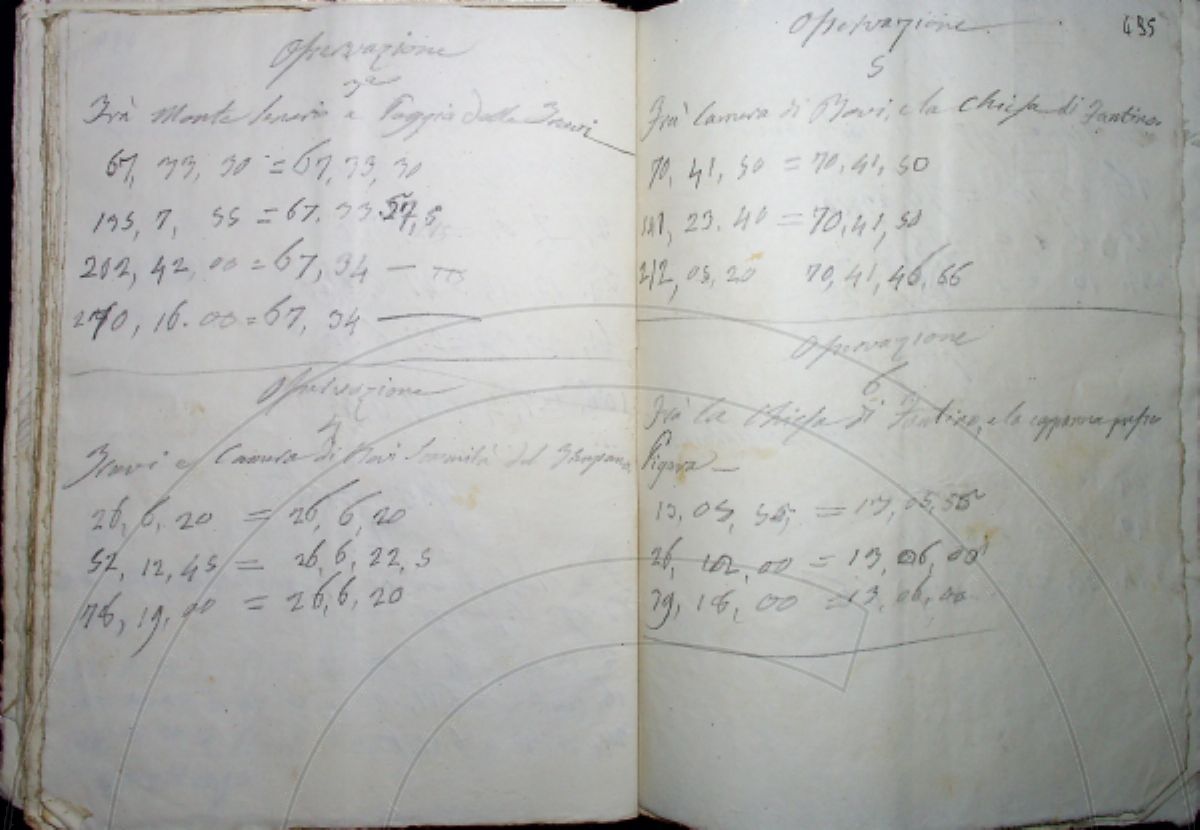 Osservazione
3a
Frà Monte e Poggio dalle
67, 33, 30 = 67, 33, 30
135, 7, 55 = 67. 33. 57, 5
202, 42, 00 = 67, 34 —
270, 16. 00 = 67, 34 —
Osservazione
4
e Camera di Bovi Sommità del
26, 6, 20 = 26, 6, 20
52, 12, 45 = 26, 6, 22, 5
78, 19, 00 = 26, 6, 20
435
Osservazione
5
Frà Camera di Bovi, e la Chiesa di Fantino
70, 41, 50 = 70, 41, 50
141, 23. 40 = 70, 41, 50
212, 05, 20 70, 41, 46, 66
Osservazione
6
Frà la Chiesa di Fantino, e la
Pigara —
13, 05, 55, = 13, 05, 55
26, 12, 00 = 13, 06, 00
39, 18, 00 = 13, 06, 00